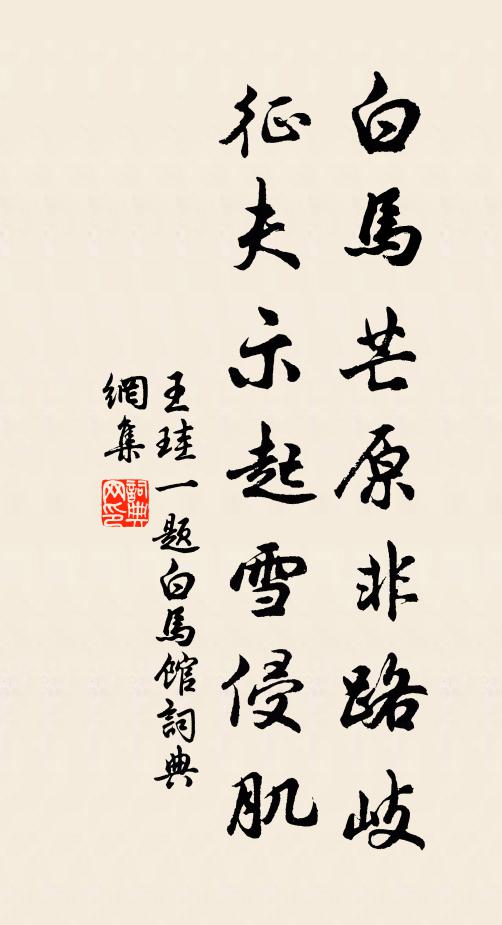 白馬芒原非路岐
征夫示起雪侵肌
王珪一題白馬館詞典
網集
詞典網印